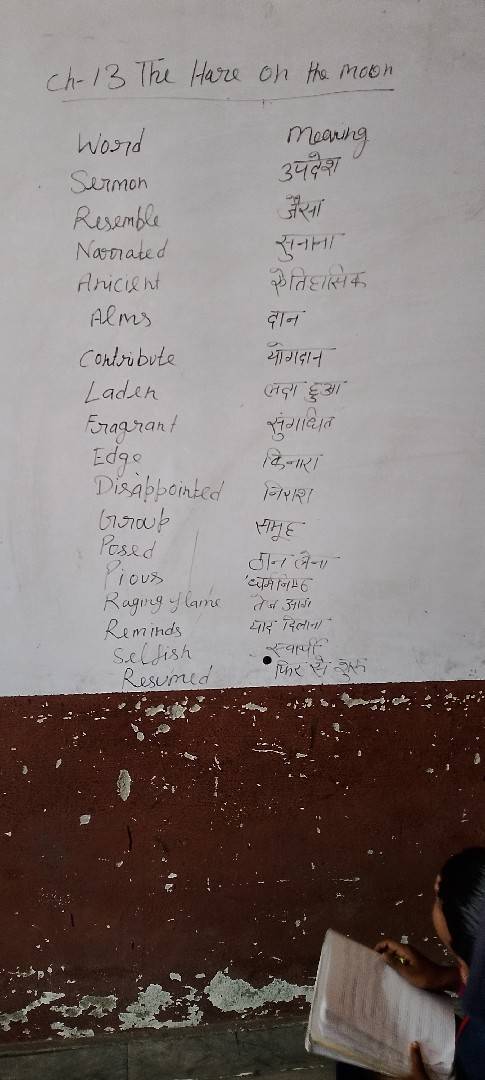 Ch-13 The Hare on the moon
Word Meaning
Sermon उपदेश
Resemble जैसा
Narrated सुनाना
Anicient ऐतिहासिक
Alms दान
Contribute योगदान
Laden लदा हुआ
Fragrant सुंगधित
Edge किनारा
Disappointed निराश
Group समूह
Posed ठान लेना
Pious धर्मनिष्ठ
Raging flame तेज आग
Reminds याद दिलाना
Selfish स्वार्थी
Resumed फिर से शुरू